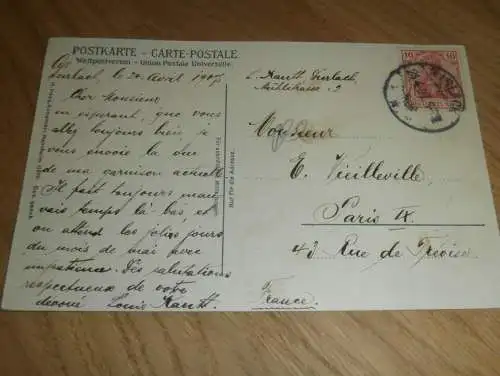 POSTKARTE - CARTE-POSTALE
Weltpostverein - Union Postale Universelle.
Durlach, le 20 Avril 1907
Cher Monsieur
en esperant, que vous
allez toujours bien, je
vous envoie la vue
de ma garnison actuelle
Il fait toujours mau-
vais temps là bas, et
on attend les jolis jours
du mois de mai avec
impatience. Des salutations
respectueux de votre
devoué Louis Kautt.
Nur für die Adresse.
L. Kautt Durlach,
Mühlstrasse 2
Monsieur
E. Vieilleville,
Paris IX.
43 Rue de Trévise
France.
10 10